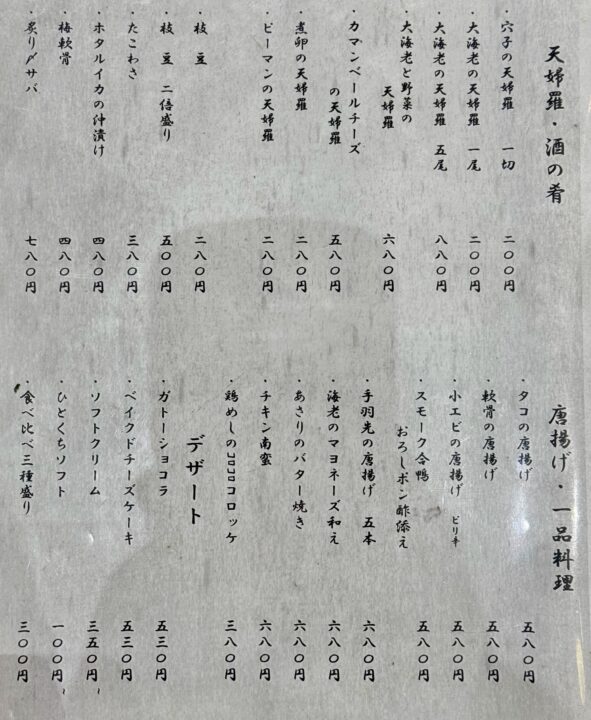 天婦羅・酒の肴
・穴子の天婦羅 一切 二〇〇円
・大海老の天婦羅 一尾 二〇〇円
・大海老の天婦羅 五尾 八八〇円
・大海老と野菜の
天婦羅 六八〇円
・カマンベールチーズ
の天婦羅 五八〇円
・煮卵の天婦羅 二八〇円
・ピーマンの天婦羅 二八〇円
・枝豆 二八〇円
・枝豆 二倍盛り 五〇〇円
・たこわさ 三八〇円
・ホタルイカの沖漬け 四八〇円
・梅軟骨 四八〇円
・炙り〆サバ 七八〇円
唐揚げ・一品料理
・タコの唐揚げ 五八〇円
・軟骨の唐揚げ 五八〇円
・小エビの唐揚げ ピリ辛 五八〇円
・スモーク合鴨
おろしポン酢添え 五八〇円
・手羽先の唐揚げ 五本 六八〇円
・海老のマヨネーズ和え 六八〇円
・あさりのバター焼き 六八〇円
・チキン南蛮 六八〇円
・鶏めしのコロコロコロッケ 三八〇円
デザート
・ガトーショコラ 五三〇円
・ベイクドチーズケーキ 五三〇円
・ソフトクリーム 三五〇円~
・ひとくちソフト 一〇〇円~
・食べ比べ三種盛り 三〇〇円